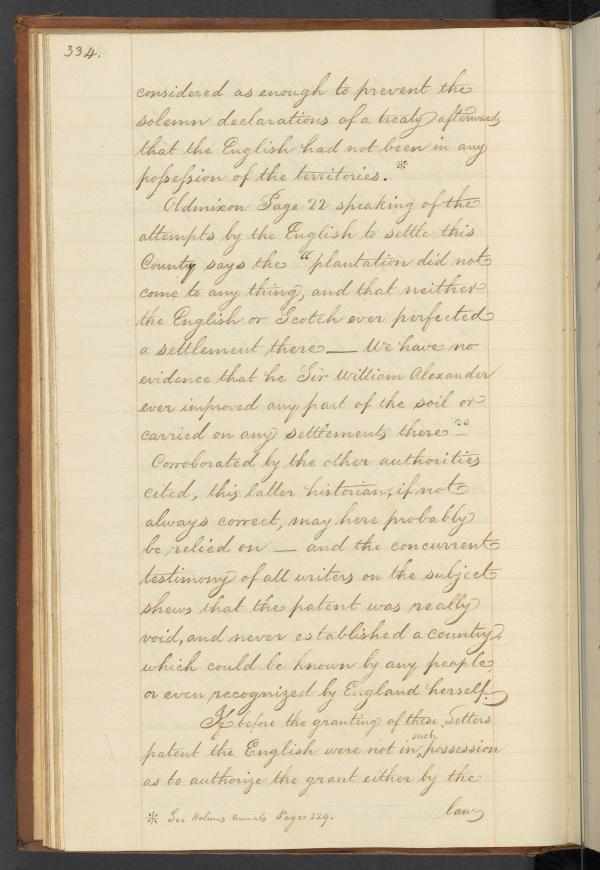 334.
considered as enough to prevent the
solemn declarations of a treaty afterwards
that the English had not been in any
possession of the territories. *
Oldmixon Page 22 speaking of the
attempts by the English to settle this
County says the "plantation did not
come to any thing, and that neither
the English or Scotch ever perfected
a settlement there — We have no
evidence that he Sir William Alexander
ever improved any part of the soil or
carried on any settlements there"
Corroborated by the other authorities
cited, this latter historian, if not
always correct, may here probably
be relied on — and the concurrent
testimony of all writers on the subject
shews that the patent was really
void, and never established a country,
which could be known by any people,
or even recognized by England herself.
If before the granting of these Letters
patent the English were not in such possession
as to authorize the grant either by the
law
* See Holmes annals Page 229.